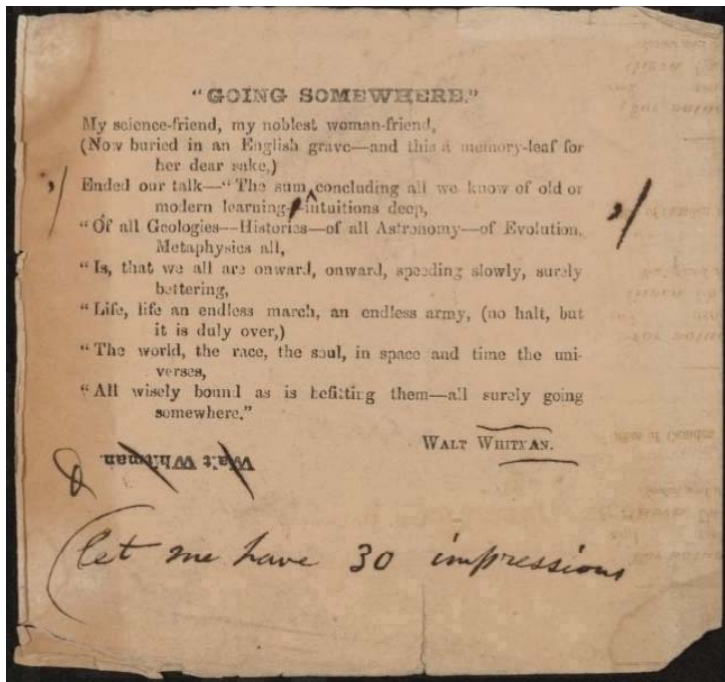 "GOING SOMEWHERE."
My science-friend, my noblest woman-friend,
(Now buried in an English grave—and this a memory-leaf for
her dear sake,)
Ended our talk—"The sum concluding all we know of old or
modern learning, intuitions deep,
"Of all Geologies—Histories—of all Astronomy—of Evolution,
Metaphysics all,
"Is, that we all are onward, onward, speeding slowly, surely
bettering,
"Life, life an endless march, an endless army, (no halt, but
it is duly over,)
"The world, the race, the soul, in space and time the uni-
verses,
"All wisely bound as is befitting them—all surely going
somewhere."
WALT WHITMAN.
Walt Whitman.
(let me have 30 impressions